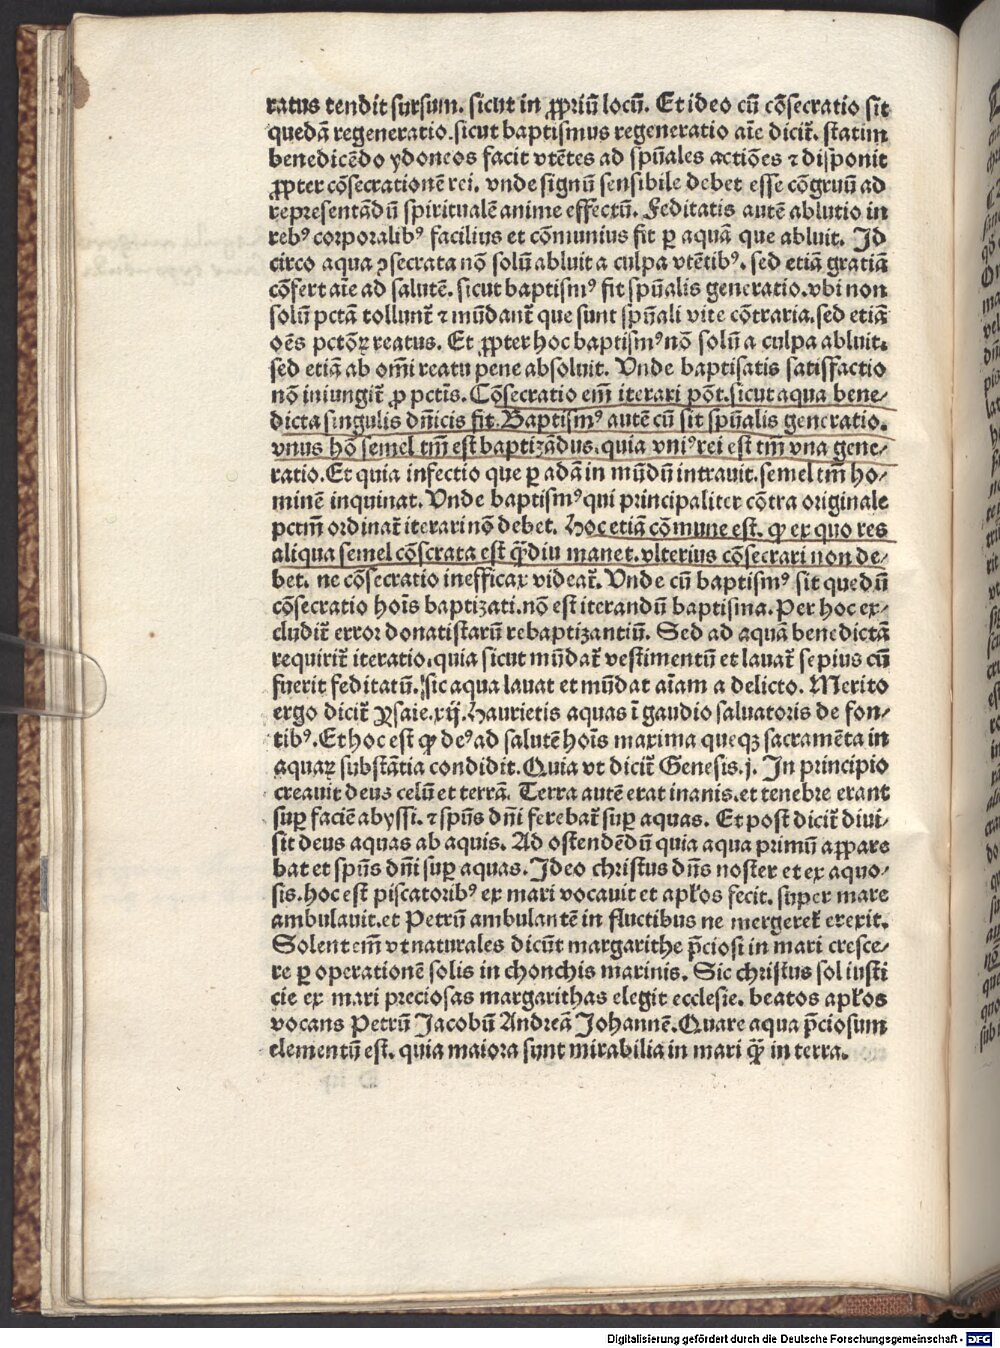 ratus tendit sursum. sicut in ꝓpriū locū. Et ideo cū cōsecratio sit
quedā regeneratio.sicut baptismus regeneratio aīe dicit᷑. statim
benedicēdo ydoneos facit vtētes ad spūales actiōes ⁊ disponit
ꝓpter cōsecrationē rei. vnde signū sensibile debet esse cōgruū ad
representādū spiritualē anime effectū. Feditatis autē ablutio in
rebꝰ corporalibꝰ facilius et cōmunius fit ꝑ aquā que abluit. Id
circo aqua ꝯsecrata nō solū abluit a culpa vtētibꝰ. sed etiā gratiā
cōfert aīe ad salutē. sicut baptismꝰ fit spūalis generatio.vbi non
solū pctā tollunt᷑ ⁊ mūdant᷑ que sunt spūali vite cōtraria.sed etiā
oēs pctōꝝ reatus. Et ꝓpter hoc baptismꝰ nō solū a culpa abluit.
sed etiā ab om̄i reatu pene absoluit. Vnde baptisatis satisfactio
nō iniungit᷑ ꝓ pctīs. Cōsecratio em̄ iterari pōt.sicut aqua bene⸗
dicta singulis dn̄icis fit. Baptismꝰ autē cū sit spūalis generatio.
vnus hō semel tm̄ est baptizādus. quia vniꝰ rei est tm̄ vna gene⸗
ratio. Et quia infectio que ꝑ adā in mūdū intrauit. semel tm̄ ho⸗
minē inquinat. Vnde baptismꝰ qui principaliter cōtra originale
pctm̄ ordinat᷑ iterari nō debet. Hoc etiā cōmune est. ꝙ ex quo res
aliqua semel cōscrata est q̄ȝdiu manet. vlterius cōsecrari non de⸗
bet. ne cōsecratio inefficax videat᷑. Vnde cū baptismꝰ sit quedū
cōsecratio hoīs baptizati.nō est iterandū baptisma. Per hoc ex⸗
cludit᷑ error donatistarū rebaptizantiū. Sed ad aquā benedictā
requirit᷑ iteratio.quia sicut mūdat᷑ vestimentū et lauat᷑ sepius cū
fuerit feditatū. sic aqua lauat et mūdat aīam a delicto. Merito
ergo dicit᷑ Ysaie.xij. Haurietis aquas ī gaudio saluatoris de fon⸗
tibꝰ. Et hoc est ꝙ deꝰ ad salutē hoīs maxima queqȝ sacramēta in
aquaꝝ substātia condidit. Quia vt dicit᷑ Genesis.j. In principio
creauit deus celū et terrā. Terra autē erat inanis.et tenebre erant
suꝑ faciē abyssi. ⁊ spūs dn̄i ferebat᷑ suꝑ aquas. Et post dicit᷑ diui⸗
sit deus aquas ab aquis. Ad ostendēdū quia aqua primū appare
bat et spūs dn̄i suꝑ aquas. Ideo christus dn̄s noster et ex aquo⸗
sis.hoc est piscatoribꝰ ex mari vocauit et apl̄os fecit. super mare
ambulauit.et Petrū ambulantē in fluctibus ne mergeret᷑ erexit.
Solent em̄ vt naturales dicūt margarithe p̄ciosi in mari cresce⸗
re ꝑ operationē solis in chonchis marinis. Sic christus sol iusti
cie ex mari preciosas margarithas elegit ecclesie. beatos apl̄os
vocans Petrū Jacobū Andreā Johannē. Quare aqua p̄ciosum
elementū est. quia maiora sunt mirabilia in mari q̄ȝ in terra.
Digitalisierung gefördert durch die Deutsche Forschungsgemeinschaft - DFG